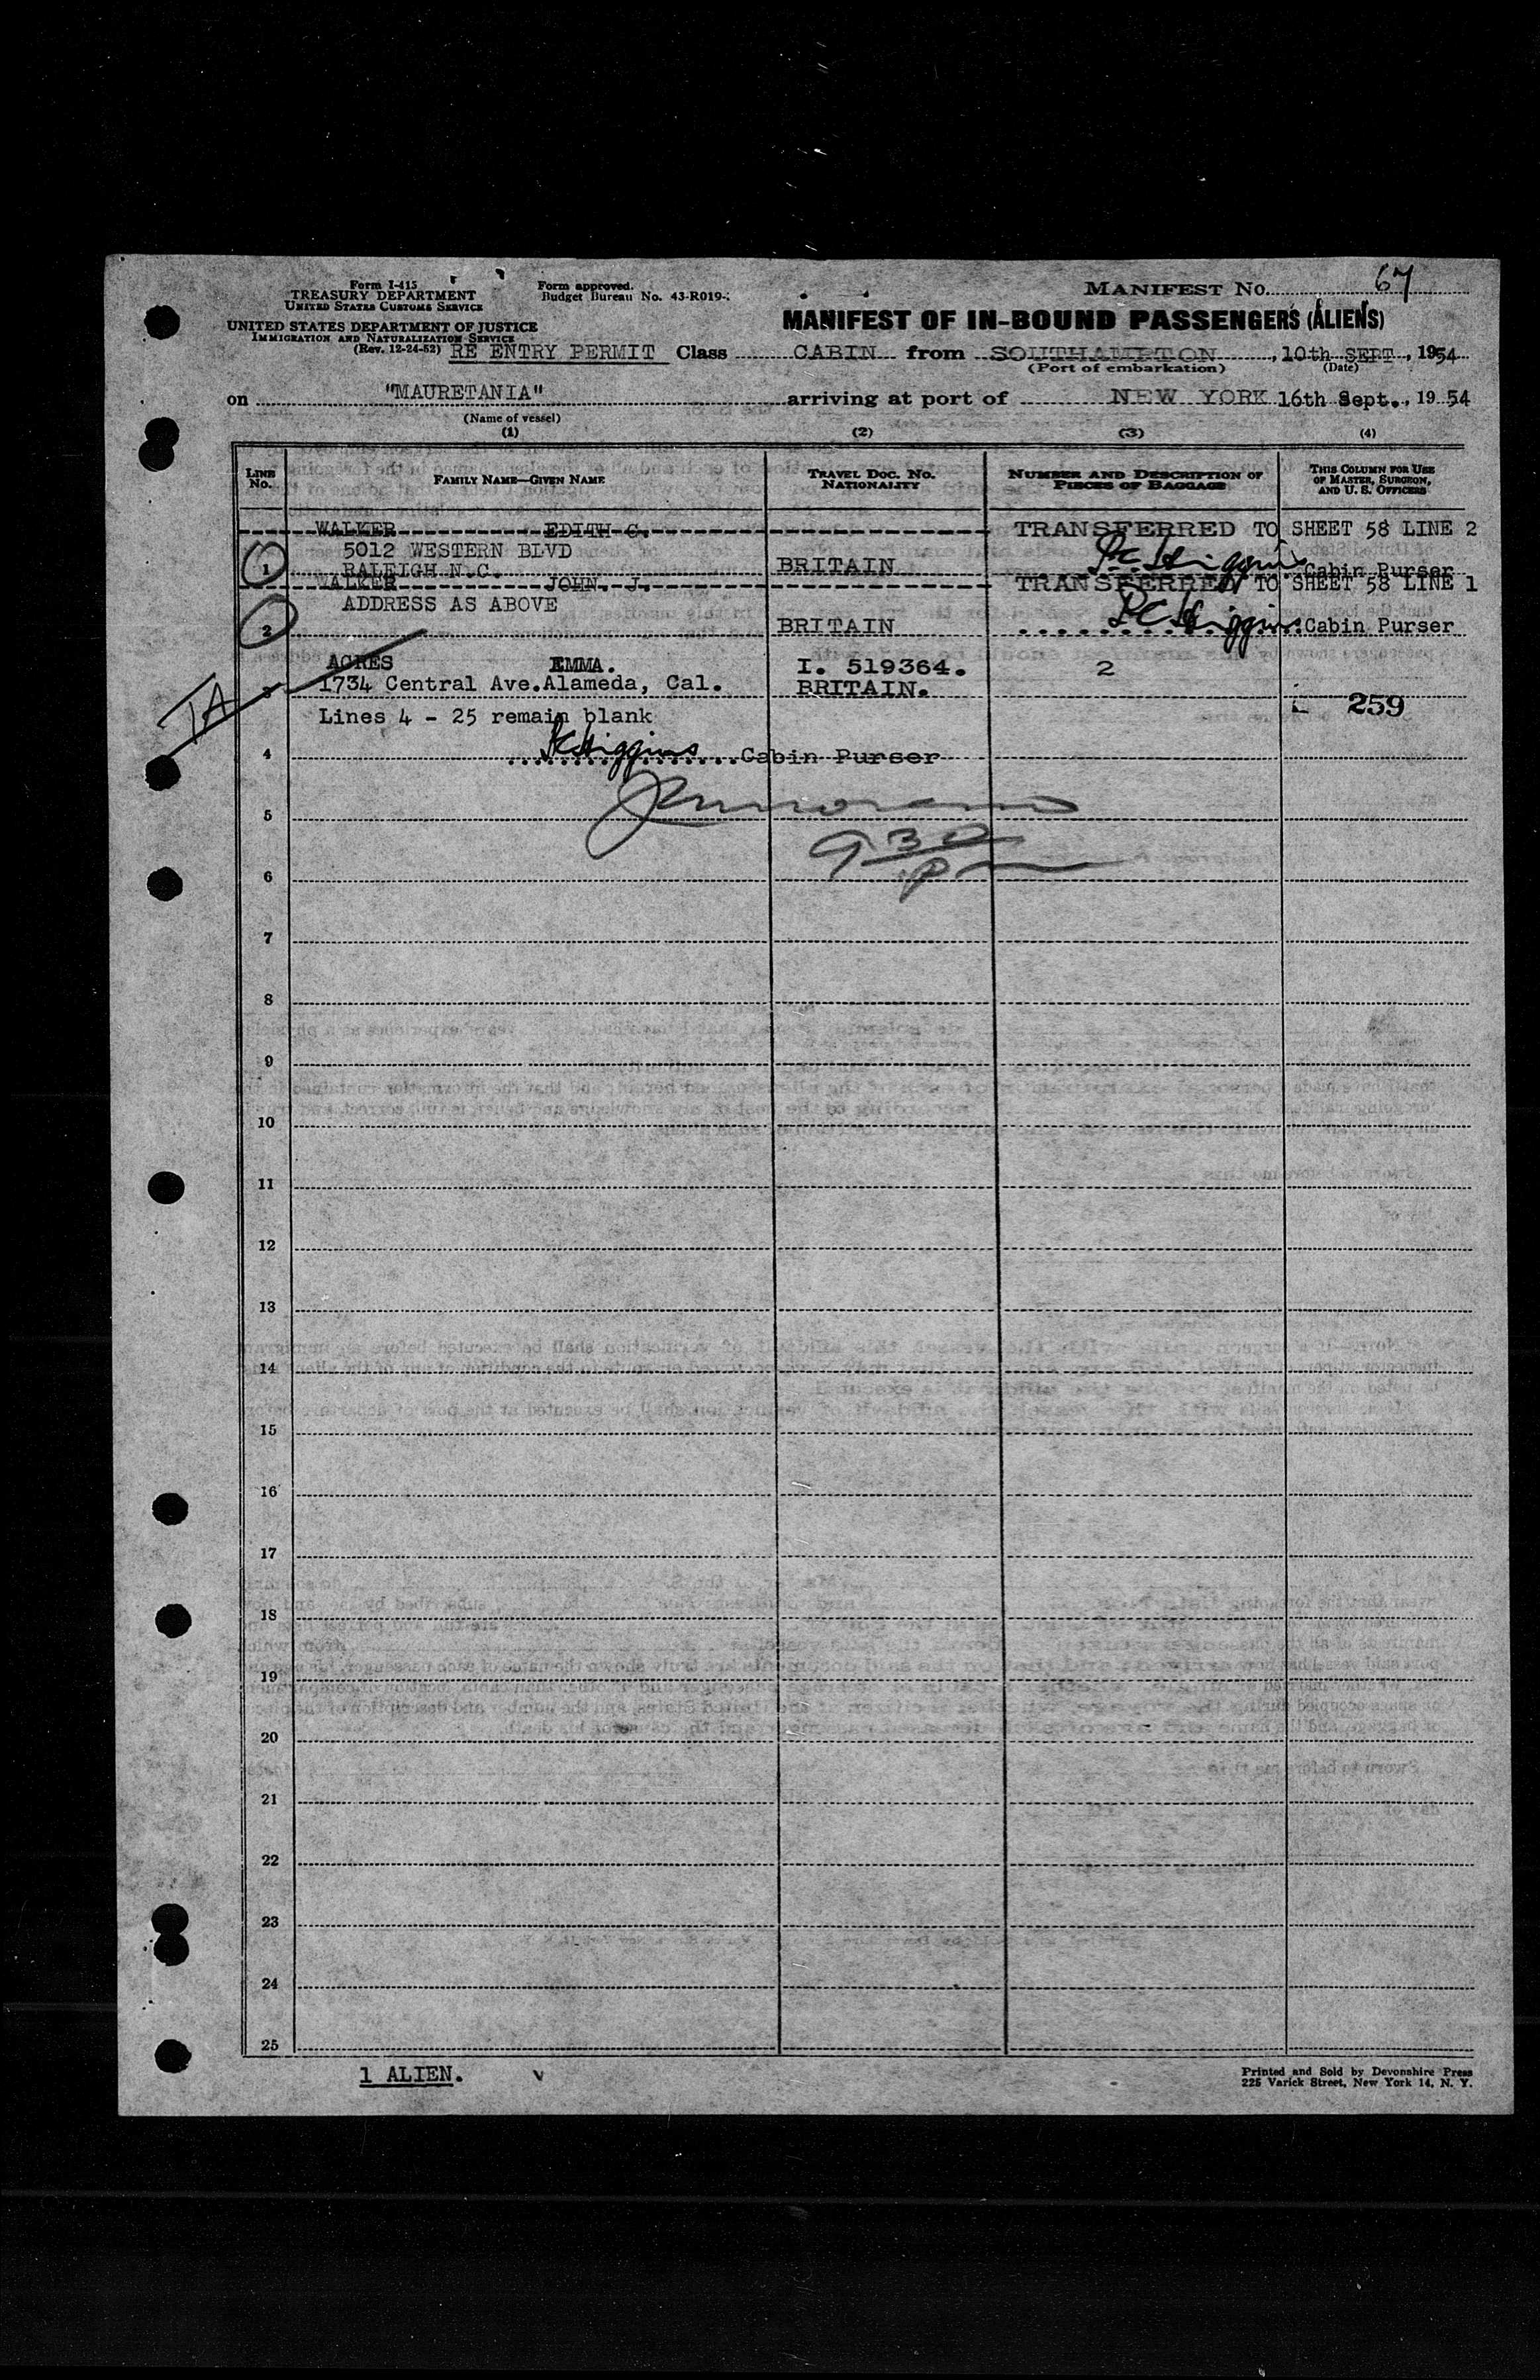 Form I-415
TREASURY DEPARTMENT
UNITED STATES CUSTOMS SERVICE
Form approved.
Budget Bureau No. 43-R019-
MANIFEST NO. 67
UNITED STATES DEPARTMENT OF JUSTICE
IMMIGRATION AND NATURALIZATION SERVICE
(Rev. 12-24-52)
MANIFEST OF IN-BOUND PASSENGERS (ALIENS)
RE ENTRY PERMIT Class CABIN from SOUTHAMPTON, 10th SEPT, 1954
(Port of embarkation) (Date)
on "MAURETANIA" arriving at port of NEW YORK 16th Sept., 19 54
(Name of vessel)
(1) (2) (3) (4)
LINE NO. FAMILY NAME—GIVEN NAME TRAVEL DOC. NO. NATIONALITY NUMBER AND DESCRIPTION OF PIECES OF BAGGAGE THIS COLUMN FOR USE OF MASTER, SURGEON, AND U. S. OFFICERS
WALKER EDITH C. TRANSFERRED TO SHEET 58 LINE 2
5012 WESTERN BLVD
1 RALEIGH N.C. BRITAIN Higgins Cabin Purser
WALKER JOHN. J. TRANSFERRED TO SHEET 58 LINE 1
ADDRESS AS ABOVE
2 BRITAIN Higgins Cabin Purser
ACRES EMMA. I. 519364. 2
IA 3 1734 Central Ave.Alameda, Cal. BRITAIN. 259
Lines 4 - 25 remain blank
4 Higgins Cabin Purser
5
930
6
7
8
9
10
11
12
13
14
15
16
17
18
19
20
21
22
23
24
25
1 ALIEN.
Printed and Sold by Devonshire Press
225 Varick Street, New York 14, N. Y.